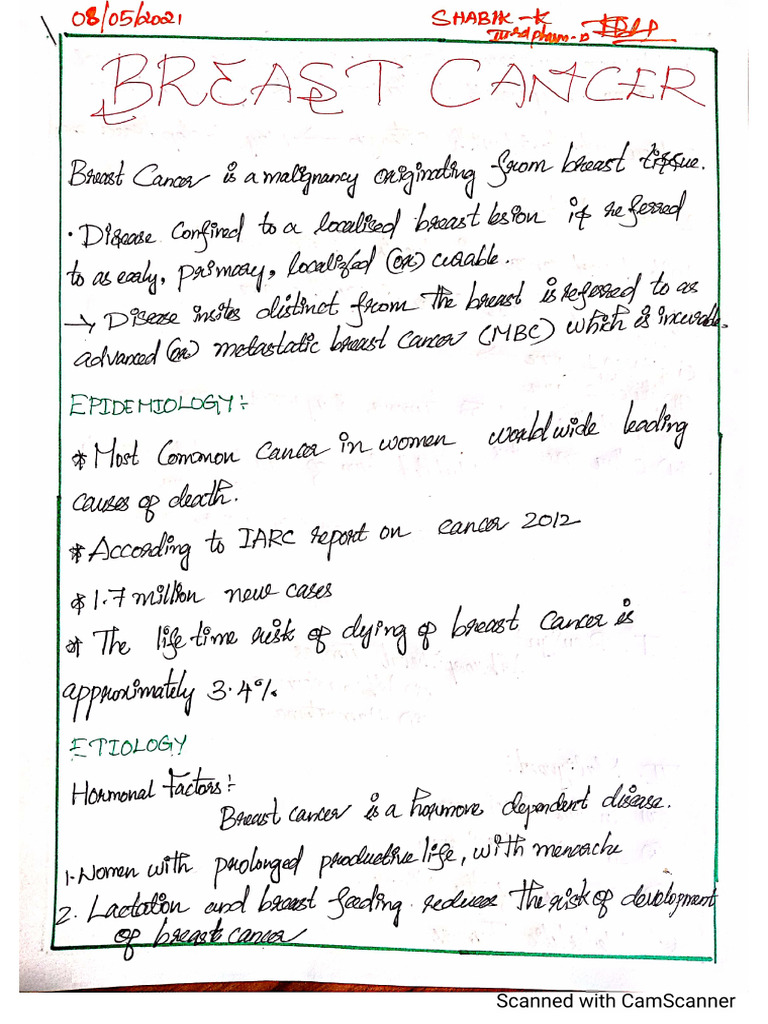 08/05/2021
SHABIK-K
BREAST CANCER
Breast Cancer is a malignancy originating from breast tissue.
· Disease Confined to a localised breast lesion is referred
to as early, primary, localized (or) curable.
→ Disease insites distinct from the breast is referred to as
advanced (or) metastatic breast Cancer (MBC) which is incurable.
EPIDEMIOLOGY:-
* Most Common Cancer in women worldwide leading
causes of death.
* According to IARC report on cancer 2012
* 1.7 million new cases
* The life time risk of dying of breast Cancer is
approximately 3.4%
ETIOLOGY
Hormonal Factors:-
Breast cancer is a hormone dependent disease.
1. Women with prolonged productive life, with menarche
2. Lactation and breast feeding reduces the risk of development
of breast cancer
Scanned with CamScanner